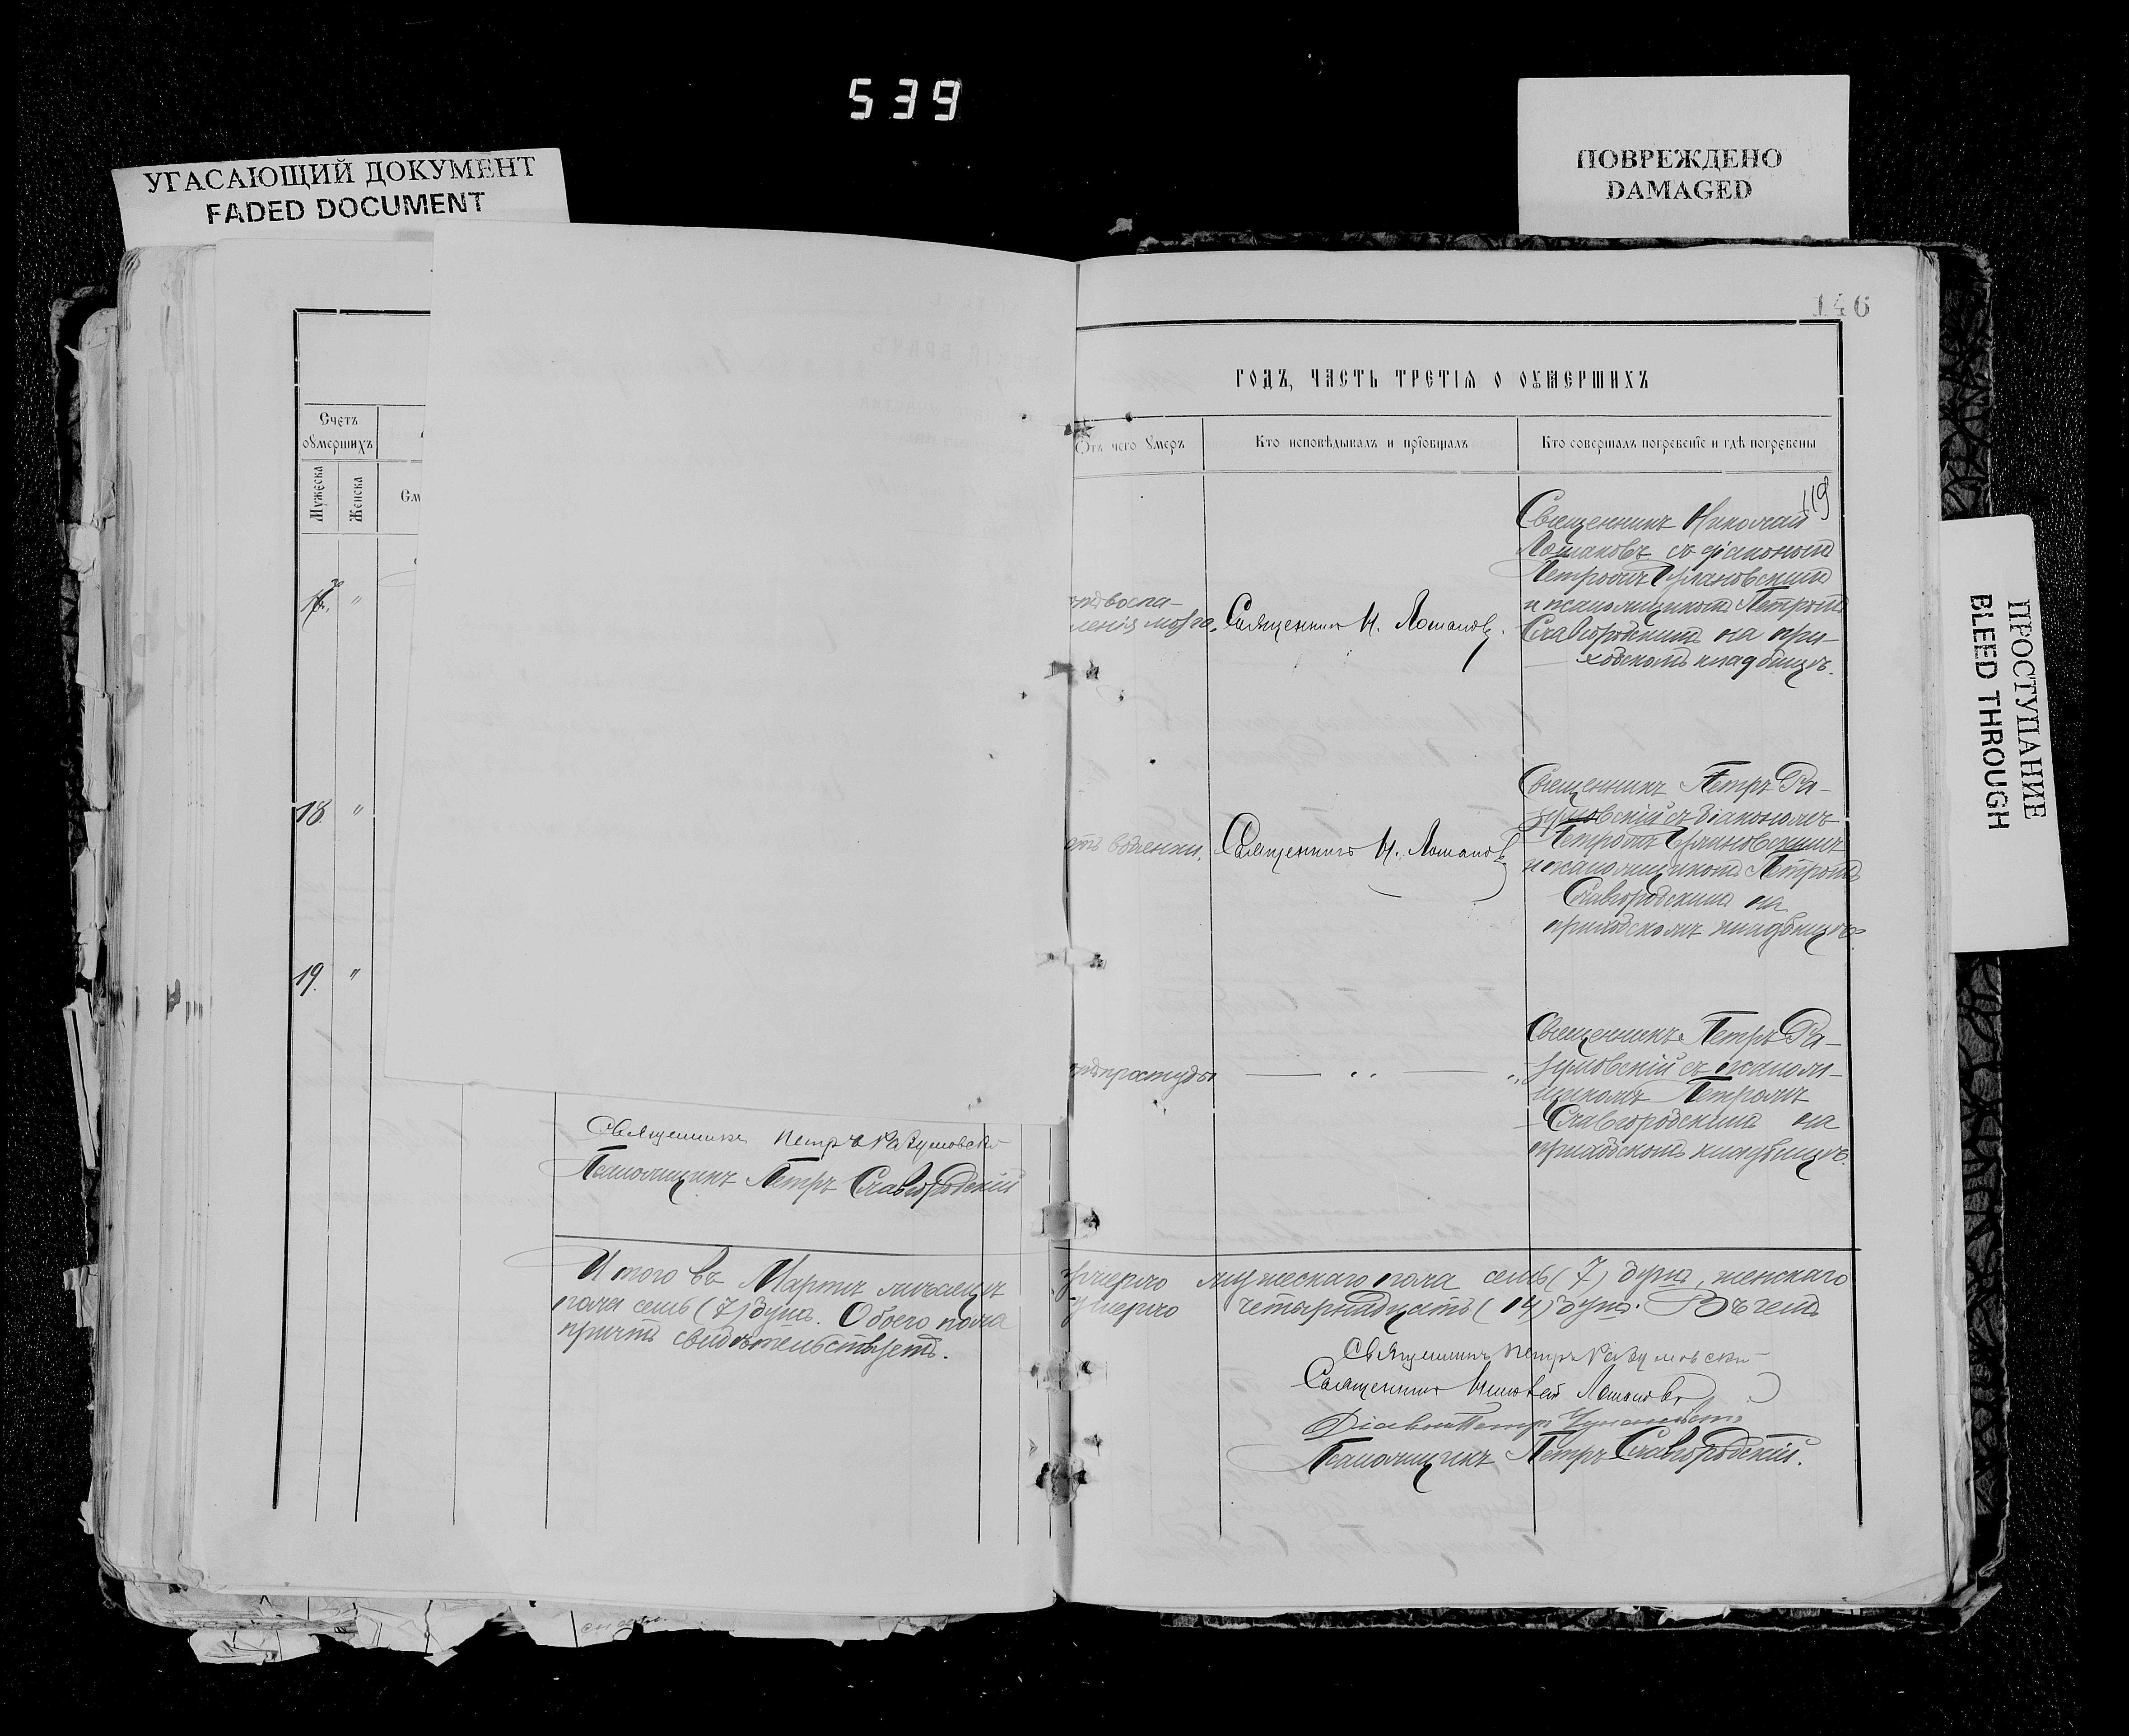 539
УГАСАЮЩИЙ ДОКУМЕНТ
FADED DOCUMENT
ПОВРЕЖДЕНО
DAMAGED
ПРОСТУПАНИЕ
BLEED THROUGH
146
119
Счетъ
оумершихъ
Мужеска
Женска
18. "
19. "
Священникъ Петръ Разумовскі
Псаломщикъ Петръ Славгородскій
Итого въ Мартѣ мѣсяцѣ
пола семь (7) душъ. Обоего пола
причтъ свидѣтельствуетъ.
ГОДЪ, ЧАСТЬ ТРЕТІЯ О ОУМЕРШИХЪ
Отъ чего умеръ
Кто исповѣдывалъ и пріобщалъ
Кто совершалъ погребеніе и гдѣ погребены
отъ воспа-
ленія мозга.
Священникъ Н. Лошаковъ.
Священникъ Николай
Лошаковъ съ діакономъ
Петромъ
и псаломщикомъ Петромъ
Славгородскимъ на при-
ходскомъ кладбищѣ.
отъ водянки.
Священникъ Н. Лошаковъ
Священникъ Петръ Ра-
зумовскій съ діакономъ
Петромъ
и псаломщикомъ Петромъ
Славгородскимъ на
приходскомъ кладбищѣ
отъ простуды
Священникъ Петръ Ра-
зумовскій съ псалом-
щикомъ Петромъ
Славгородскимъ на
приходскомъ кладбищѣ.
умерло мужескаго пола семь (7) душъ, женскаго
умерло четырнадцать (14) душъ. Въ чемъ
Священникъ Петръ Разумовскі
Священникъ Николай Лошаковъ
Діаконъ Петръ
Псаломщикъ Петръ Славгородскій.